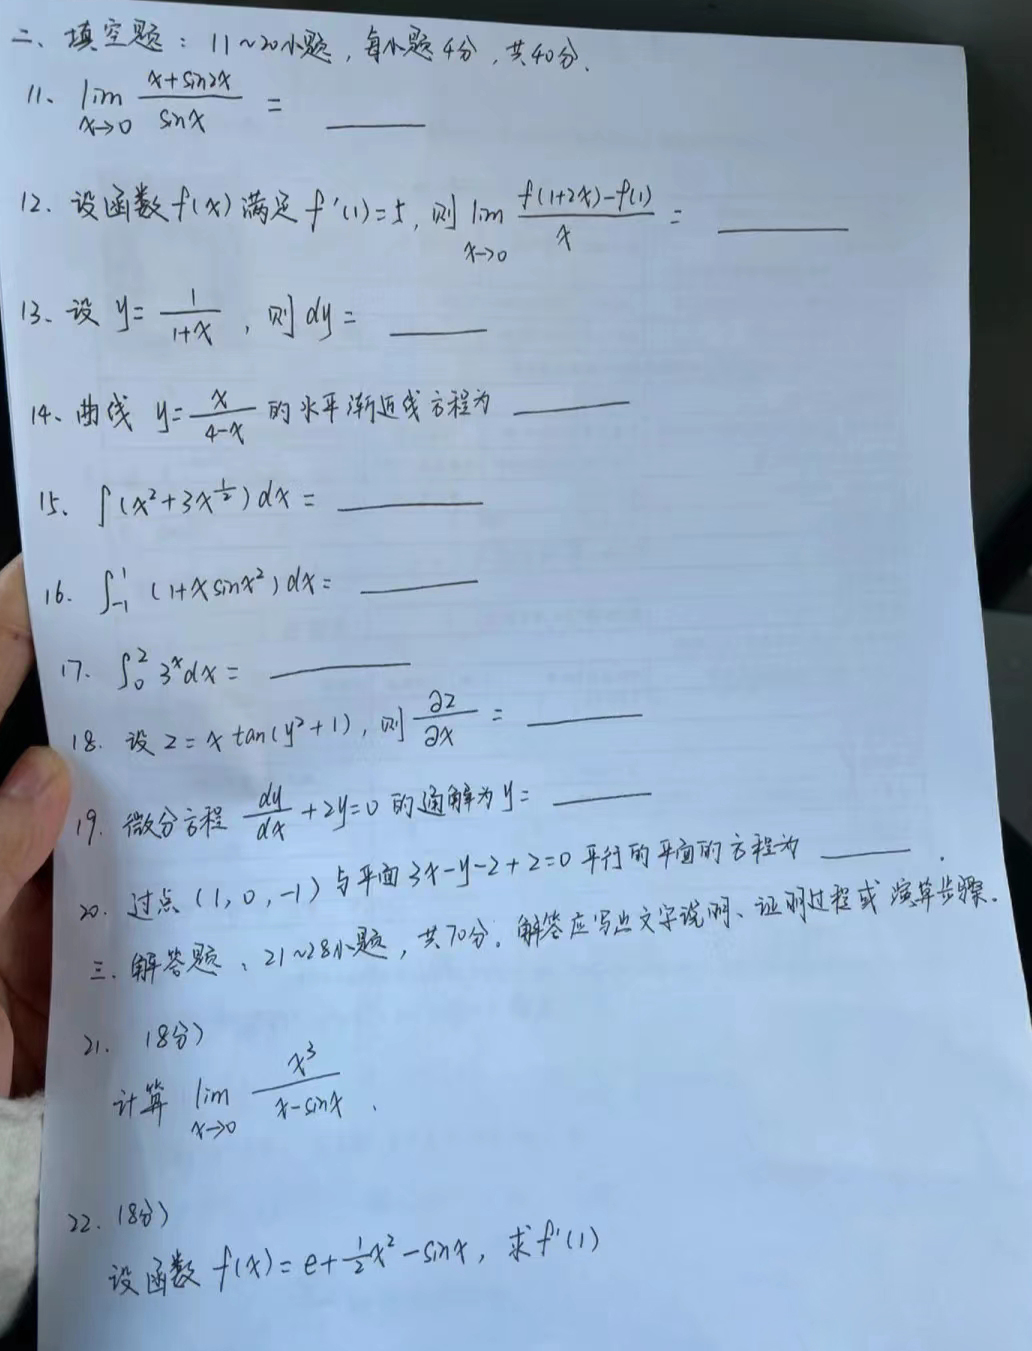 二、填空题：11~20小题，每小题4分，共40分.
11、lim x→0 (x+sin2x)/sinx = ____
12. 设函数f(x)满足f'(1)=5，则lim x→0 (f(1+2x)-f(1))/x = ____
13、设 y= 1/(1+x)，则dy= ____
14、曲线 y= x/(4-x) 的水平渐近线方程为 ____
15、∫(x²+3x^(1/2))dx= ____
16. ∫₋₁¹ (1+xsinx²)dx= ____
17. ∫₀² 3ˣdx= ____
18. 设z=xtan(y²+1)，则 ∂z/∂x = ____
19. 微分方程 dy/dx +2y=0的通解为y= ____
20. 过点(1,0,-1)与平面3x-y-z+2=0平行的平面的方程为 ____.
三、解答题：21~28小题，共70分。解答应写出文字说明、证明过程或演算步骤.
21. (8分)
计算 lim x→0 x³/(x-sinx).
22. (8分)
设函数 f(x)=e+1/2x²-sinx，求f'(1)